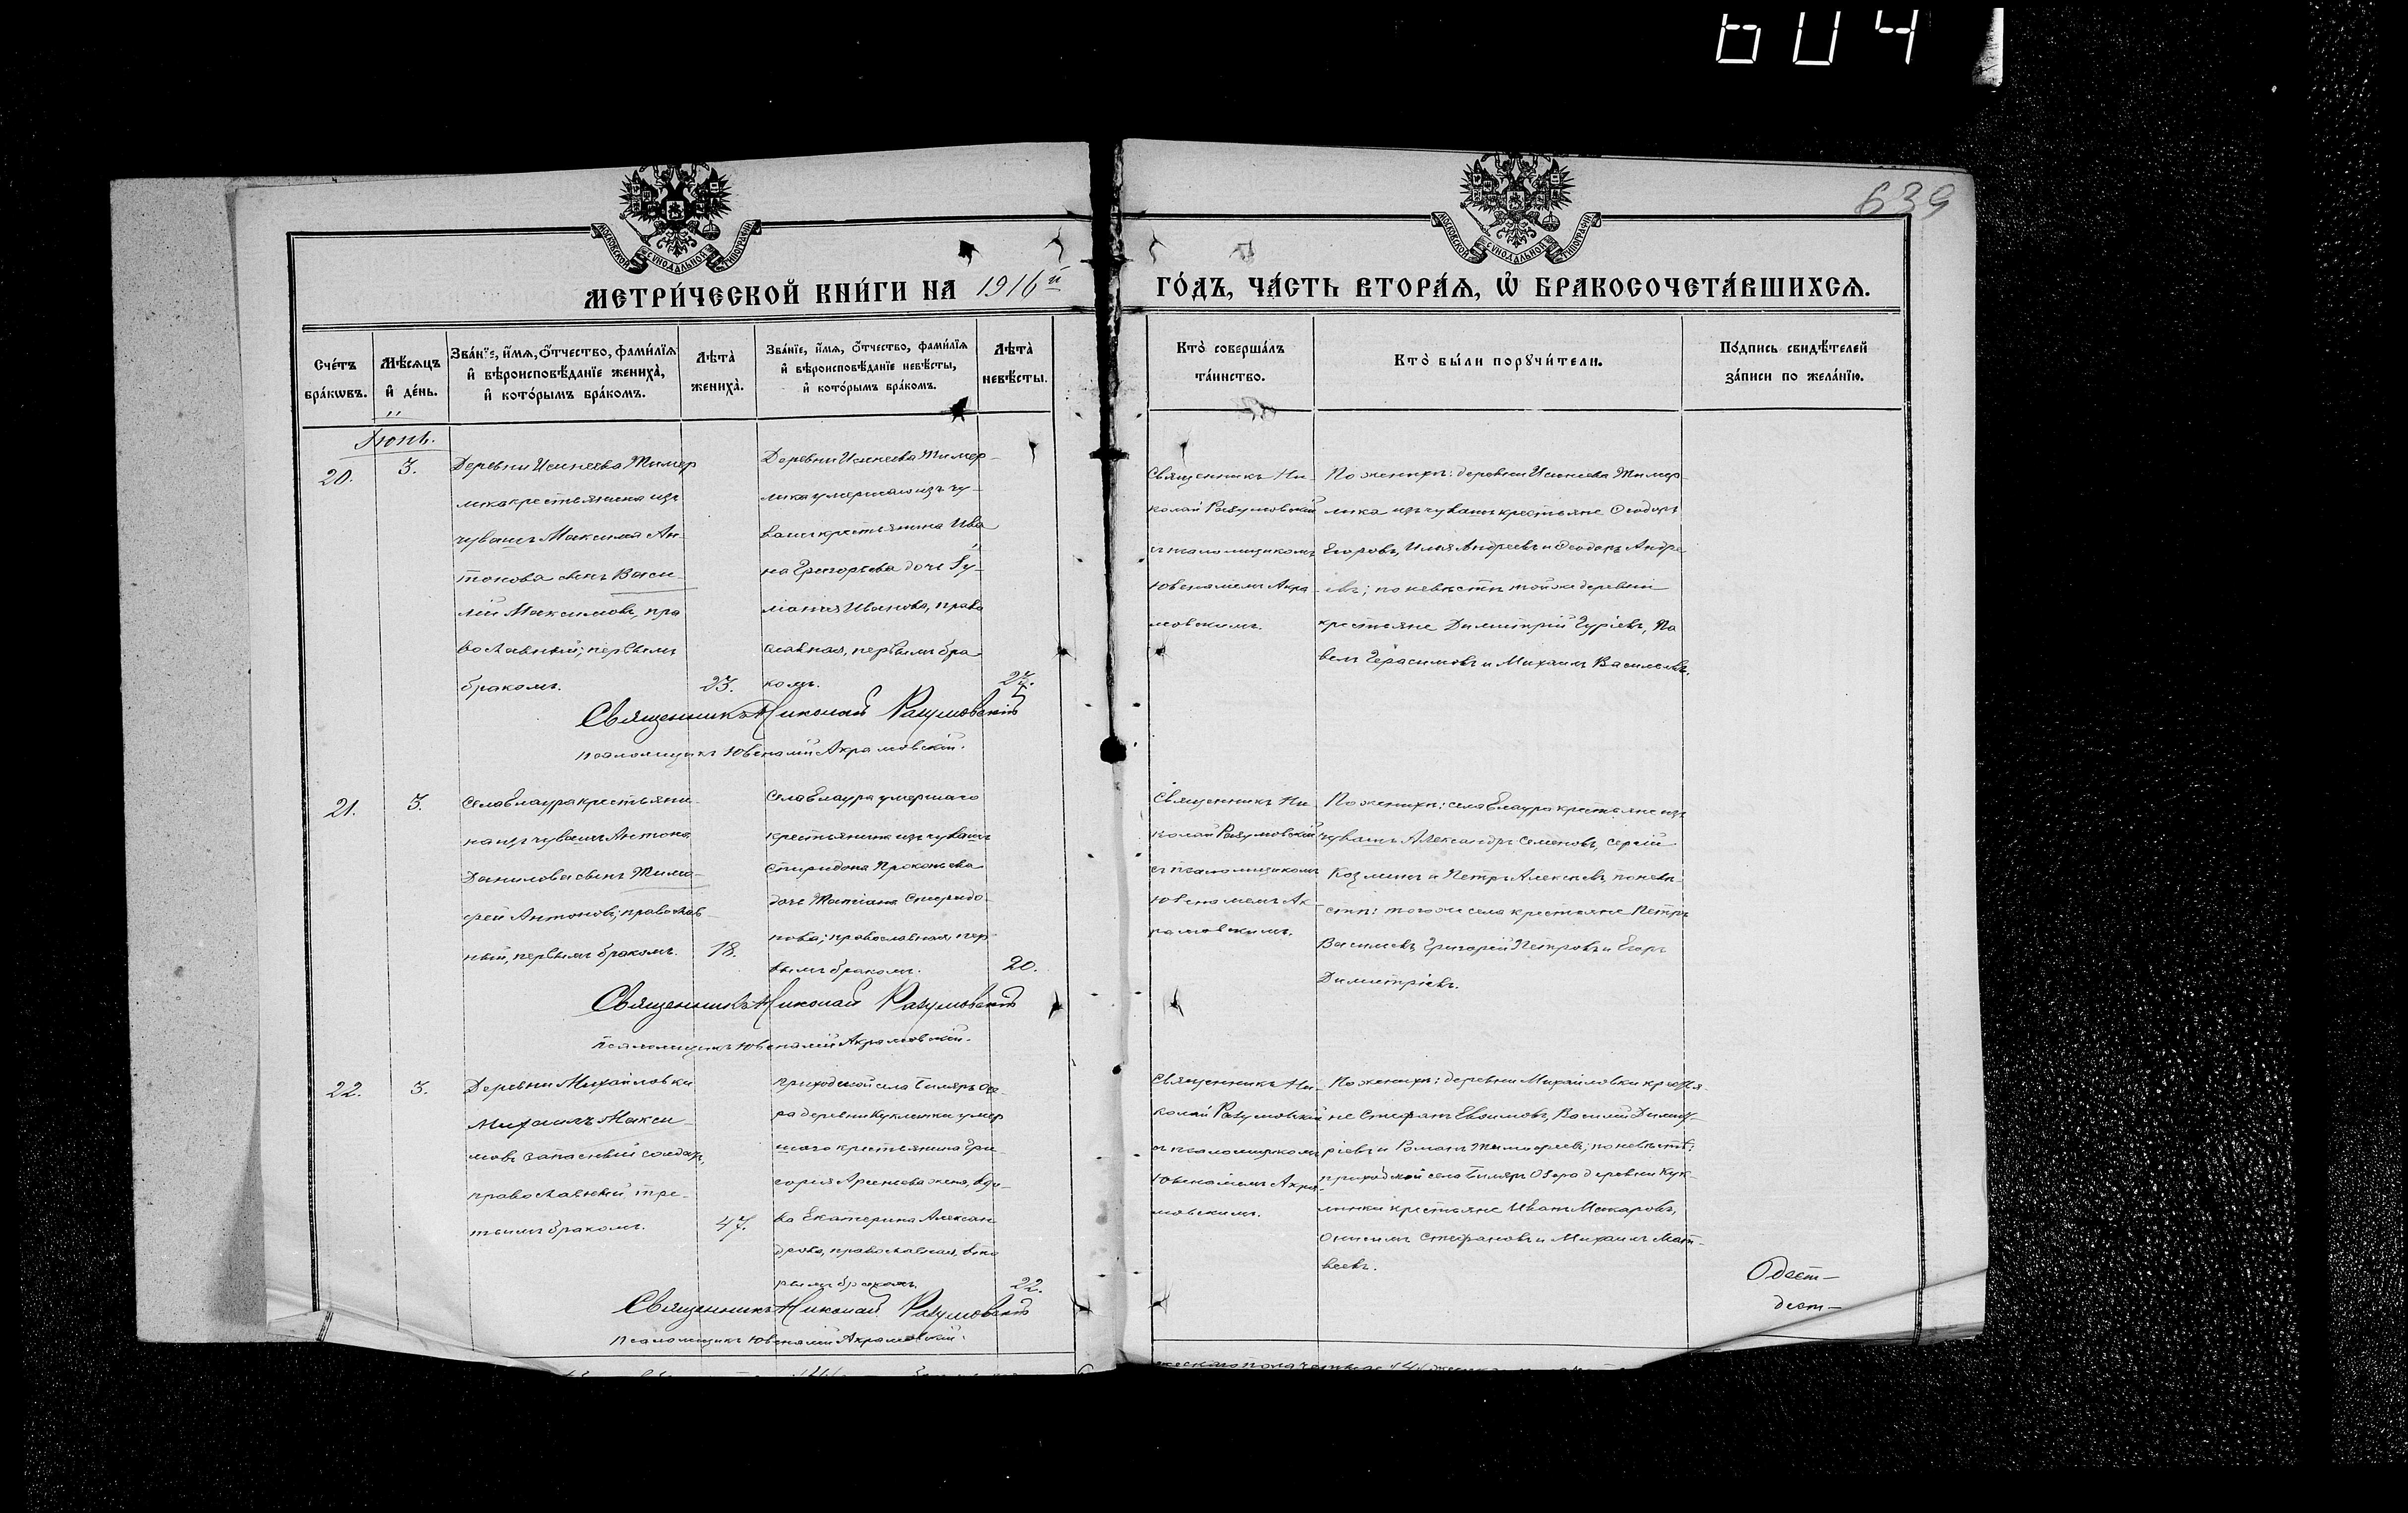 604
639
МОСКОВСКОЙ СѴНОДАЛЬНОЙ ТИПОГРАФІИ
МОСКОВСКОЙ СѴНОДАЛЬНОЙ ТИПОГРАФІИ
МЕТРИ́ЧЕСКОЙ КНИ́ГИ НА 1916й ГО́ДЪ, ЧА́СТЬ ВТОРА́Я, Ѡ БРАКОСОЧЕТА́ВШИХСЯ.
Сче́тъ
бра́кѡвъ.
Мѣ́сяцъ
и де́нь.
Зва́нїе, и́мя, ѻ́тчество, фами́лїя
и вѣроисповѣ́данїе жениха̀,
и кото́рымъ бра́комъ.
Лѣта̀
жениха̀.
Зва́нїе, и́мя, ѻ́тчество, фами́лїя
и вѣроисповѣ́данїе невѣ́сты,
и кото́рымъ бра́комъ.
Лѣта̀
невѣ́сты.
Кто̀ соверша́лъ
та́инство.
Кто̀ бы́ли порꙋчи́тели.
По́дпись свидѣ́телей
за́писи по жела́нїю.
Іюнь.
20.
3.
Деревни Исинеева Тимер
лика крестьянина изъ
чувашъ Максима Ан-
тонова сынъ Васи-
лій Максимовъ, пра
вославный; первымъ
бракомъ.
23.
Деревни Исинеева Тимер-
лика умершаго изъ чу-
вашъ крестьянина Ива
на Григорьева дочь Іу-
ліанія Иванова, право
славная, первымъ бра-
комъ.
Священникъ Ни-
колай Разумовскій
съ псаломщикомъ
Ювеналіемъ Акра-
мовскимъ.
По женихѣ: деревни Исинеева Тимер-
лика изъ чувашъ крестьяне Ѳеодоръ
Егоровъ, Илья Андреевъ и Ѳеодоръ Андре
евъ; по невѣстѣ той же деревни
крестьяне Димитрій Гуріевъ, Па
велъ Герасимовъ и Михаилъ Васильевъ.
Священникъ Николай Разумовскій
Псаломщикъ Ювеналій Акрамовскій.
21.
3.
Села Елаура крестьяни-
на изъ чувашъ Антона
Данилова сынъ Тимо-
ѳей Антоновъ; православ-
ный, первымъ бракомъ.
18.
Села Елаура умершаго
крестьянина изъ чувашъ
Спиридона Прокопьева
дочь Татіана Спиридо-
нова; православная, пер-
вымъ бракомъ.
20.
Священникъ Ни-
колай Разумовскій
съ псаломщикомъ
Ювеналіемъ Ак-
рамовскимъ.
По женихѣ: села Елаура крестьяне изъ
чувашъ Александръ Семеновъ, Сергій
Козминъ и Петръ Алексѣевъ, по невѣ-
стѣ: того же села крестьяне Петръ
Васильевъ, Григорій Петровъ и Егоръ
Димитріевъ.
Священникъ Николай Разумовскій
Псаломщикъ Ювеналій Акрамовскій.
22.
3.
Деревни Михайловки
Михаилъ Макси-
мовъ запасный солдатъ,
православный, тре-
тьимъ бракомъ.
47.
Приходской села Биляръ Озе-
ра деревни Куклинки умер
шаго крестьянина Гри-
горія Арсеньева жена, вдо-
ва Екатерина Алексан
дрова, православная, вто
рымъ бракомъ.
22.
Священникъ Ни-
колай Разумовскій
съ псаломщикомъ
Ювеналіемъ Акра-
мовскимъ.
По женихѣ: деревни Михайловки крестья-
не Стефанъ Евѳимовъ, Василій Димит-
ріевъ и Романъ Тимоѳеевъ; по невѣстѣ:
приходской села Биляръ Озера деревни Кук-
линки крестьяне Иванъ Макаровъ,
Онисимъ Стефановъ и Михаилъ Мат-
вѣевъ.
Священникъ Николай Разумовскій
Псаломщикъ Ювеналій Акрамовскій.